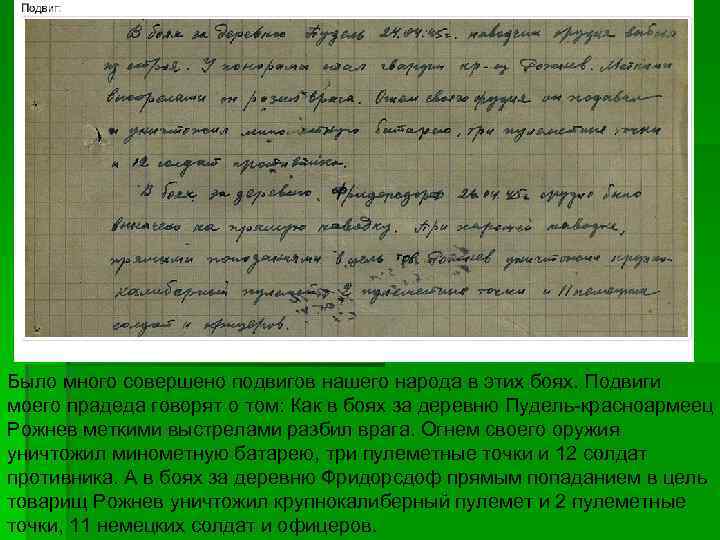 Подвиг:
В боях за деревню Пудель 24.04.45г. наводчик орудия выбыл
из строя. У панорамы стал гвардии кр-ец Рожнев. Меткими
выстрелами он разил врага. Огнем своего орудия он подавил
и уничтожил минометную батарею, три пулеметные точки
и 12 солдат противника.
В боях за деревню Фридерсдорф 26.04.45г орудие было
выкачено на прямую наводку. При хорошей наводке,
прямыми попаданиями в цель тов. Рожнев уничтожил крупно-
калиберный пулемет 2 пулеметные точки и 11 немецких
солдат и офицеров.
Было много совершено подвигов нашего народа в этих боях. Подвиги
моего прадеда говорят о том: Как в боях за деревню Пудель-красноармеец
Рожнев меткими выстрелами разбил врага. Огнем своего оружия
уничтожил минометную батарею, три пулеметные точки и 12 солдат
противника. А в боях за деревню Фридорсдоф прямым попаданием в цель
товарищ Рожнев уничтожил крупнокалиберный пулемет и 2 пулеметные
точки, 11 немецких солдат и офицеров.